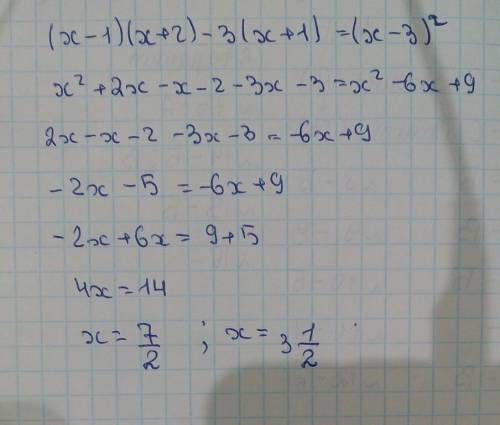 (x-1)(x+2)-3(x+1)=(x-3)²
x²+2x-x-2-3x-3=x²-6x+9
2x-x-2-3x-3=-6x+9
-2x-5=-6x+9
-2x+6x=9+5
4x=14
x=7/2 ; x=3 1/2